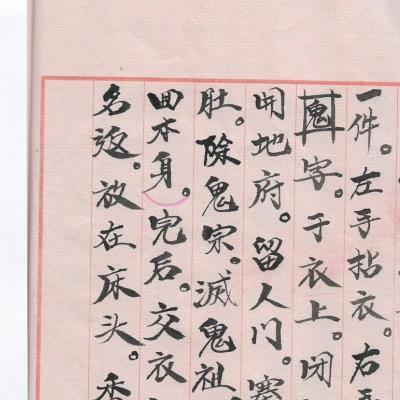 一件。左手拈衣。右手
鬼字。于衣上。闭
开地府。留人门。塞
肚。除鬼宗。滅鬼祖。
回本身。完后。交衣
名返。放在床头。香